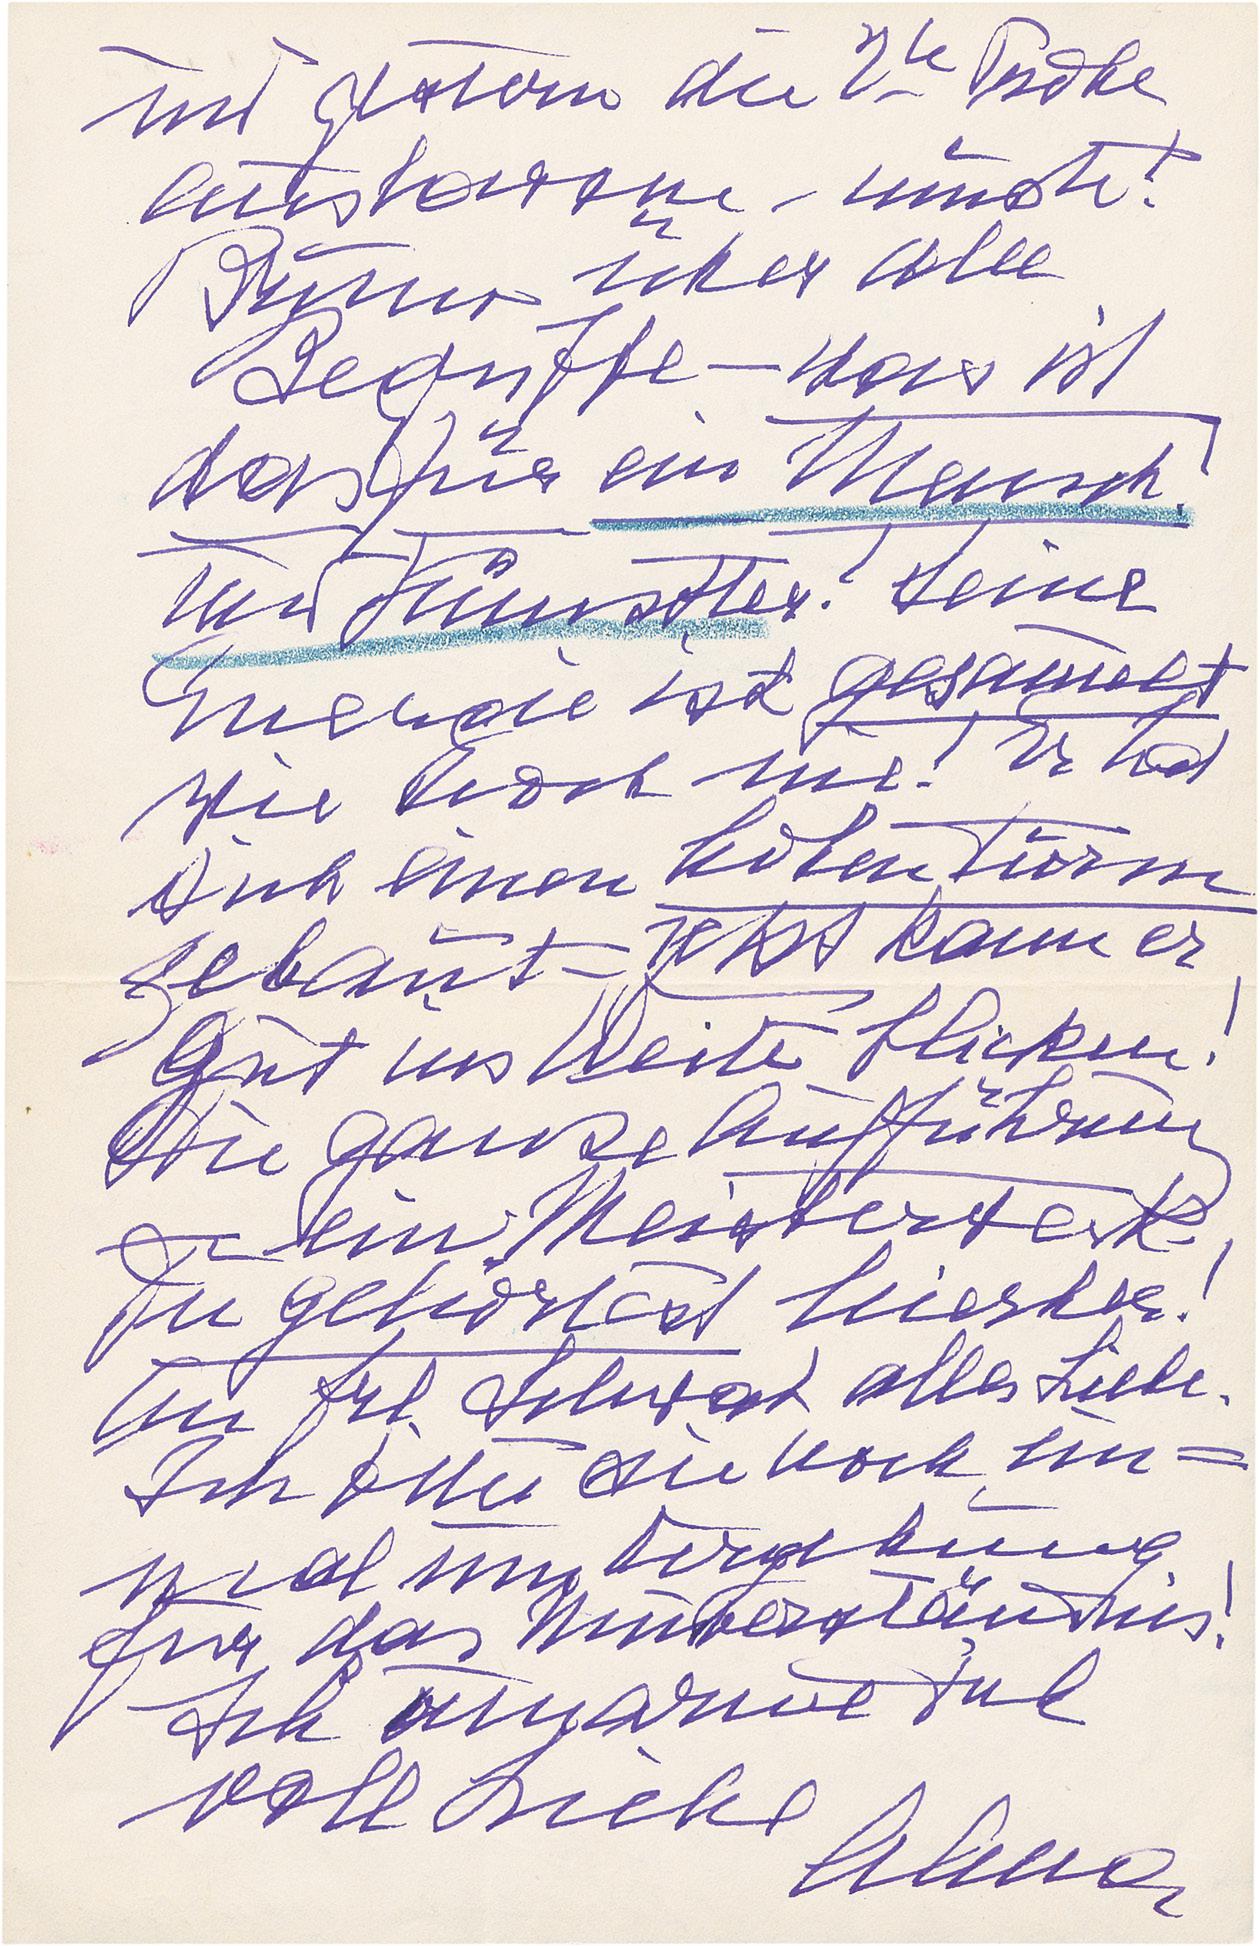 und gestern die 2te Probe
musste!
Bruno über alle
Begriffe – was ist
das für ein Mensch!
und Künstler! Seine
Energie ist gesammelt
wie noch nie! Er hat
sich einen hohen Turm
gebaut – jetzt kann er
gut ins Weite blicken!
Die ganze Aufführung
ein Meisterwerk.
Du gehörtest hierher!
An Frl. alles Liebe.
Ich bitte Sie noch ein=
mal um Vergebung
für das Missverständnis!
Ich umarme Dich
voll Liebe
Alma